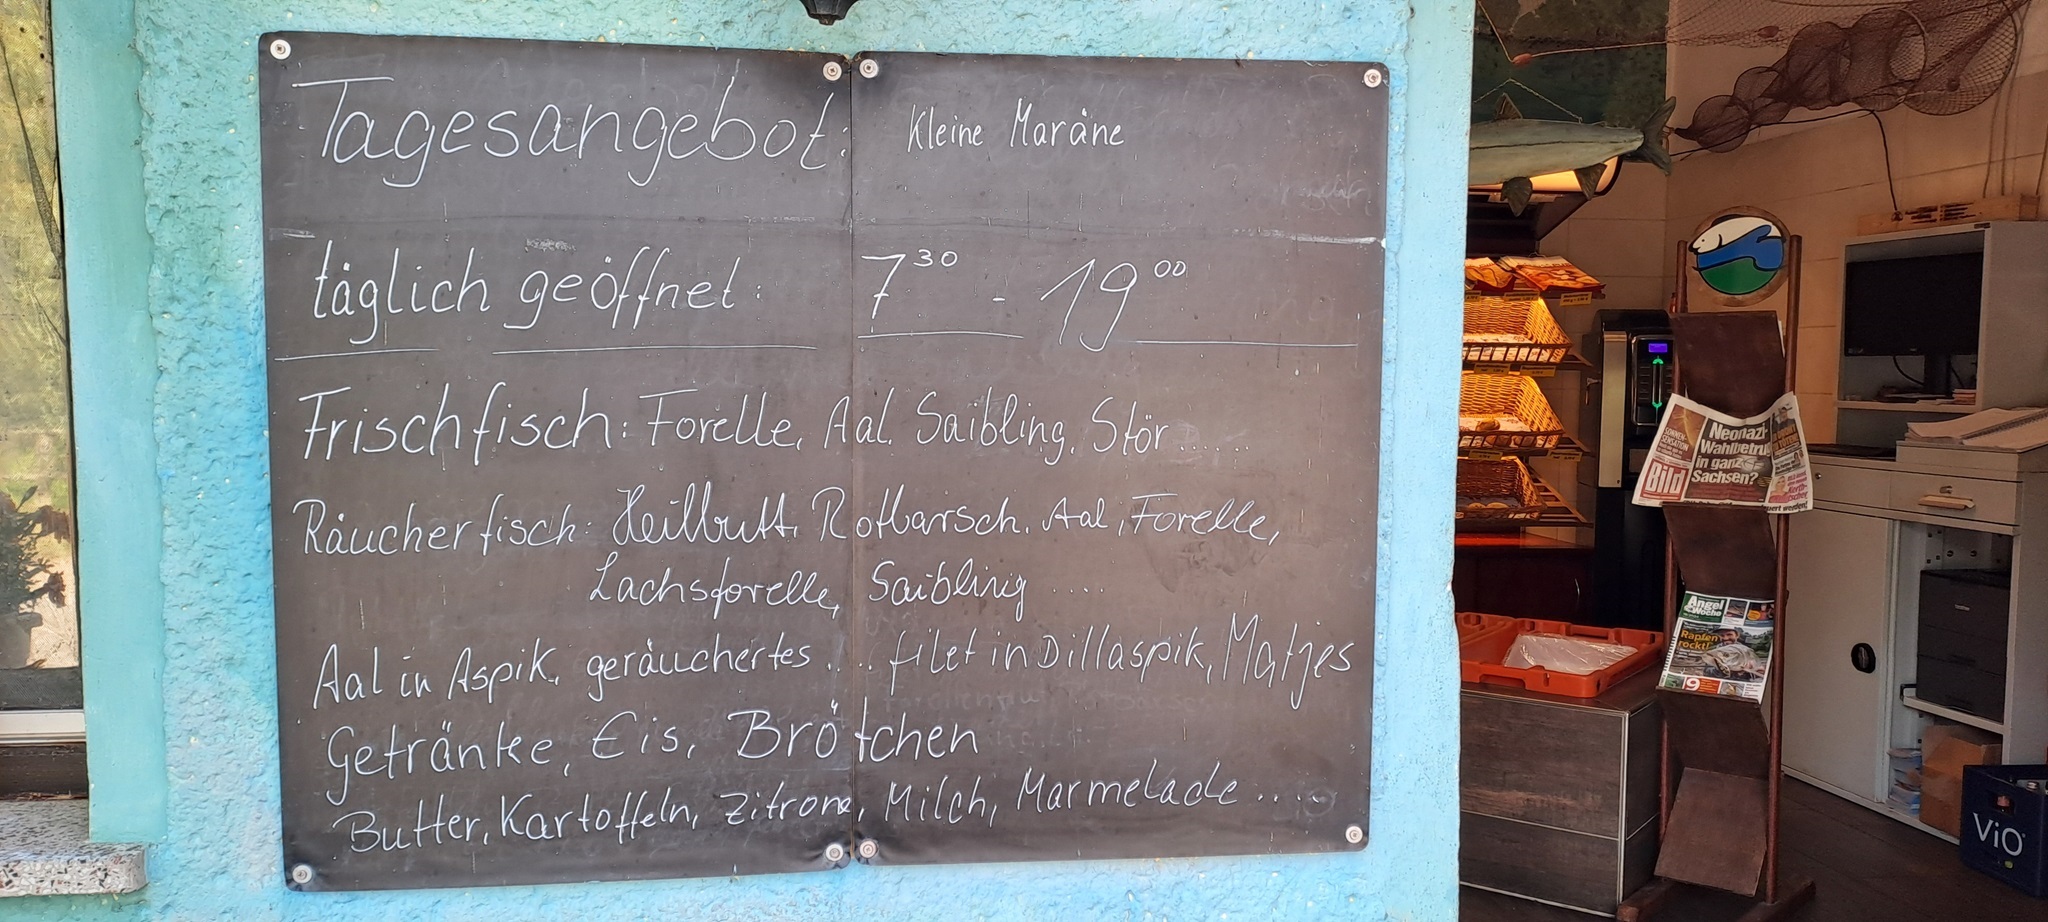 Tagesangebot: Kleine Maräne
täglich geöffnet: 7³⁰ - 19⁰⁰
Frischfisch: Forelle, Aal, Saibling, Stör......
Räucherfisch: Heilbutt, Rotbarsch, Aal, Forelle,
Lachsforelle, Saibling ....
Aal in Aspik, geräuchertes .... filet in Dillaspik, Matjes
Getränke, Eis, Brötchen
Butter, Kartoffeln, Zitrone, Milch, Marmelade ....
SONNEN-
SENSATION
Bild
Neonazi-
Wahlbetru
in ganz
Sachsen?
Angel
Woche
Rapfen
rockt!
9
ViO